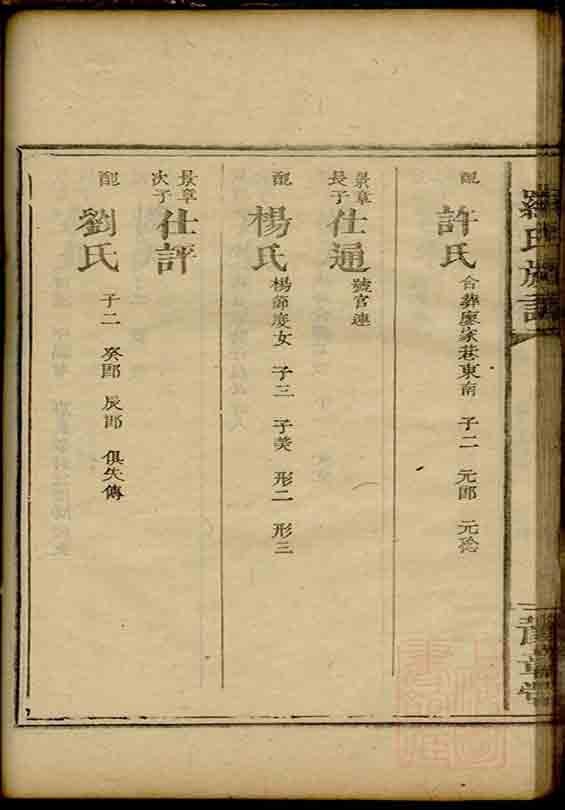 羅氏族譜
豫章堂
配 許氏 合葬廖家巷東南 子二 元郎 元稔
景章長子 仕通 號官連
配 楊氏 楊節度女 子三 子美 形二 形三
景章次子 仕評
配 劉氏 子二 癸郎 辰郎 俱失傳